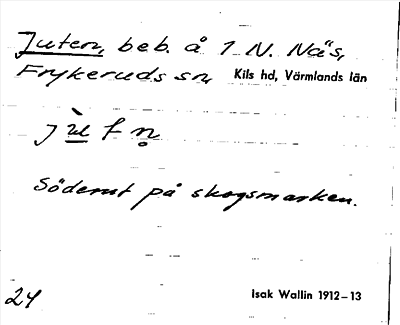 Juten, beb. å 1 N. Näs,
Frykeruds sn, Kils hd, Värmlands län
Söderut på skogsmarken.
24 Isak Wallin 1912–13